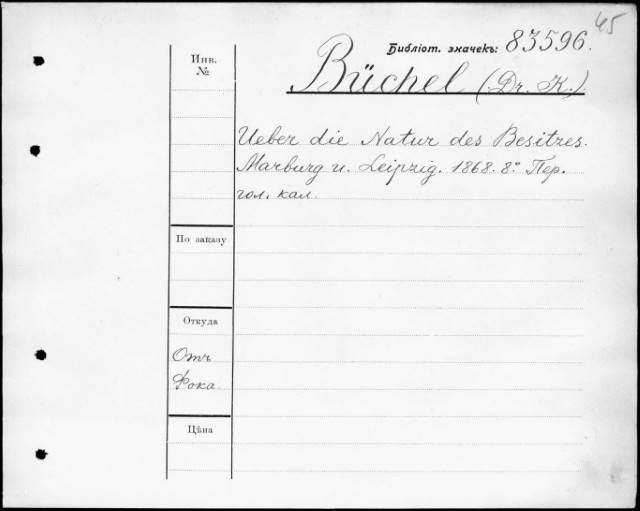 45
Библіот. значекъ: 83596.
Büchel (Dr. K.)
Инв.
№
Ueber die Natur des Besitzes.
Marburg u. Leipzig. 1868. 8° Пер.
гол. кал.
По заказу
Откуда
Отъ
Фока.
Цѣна